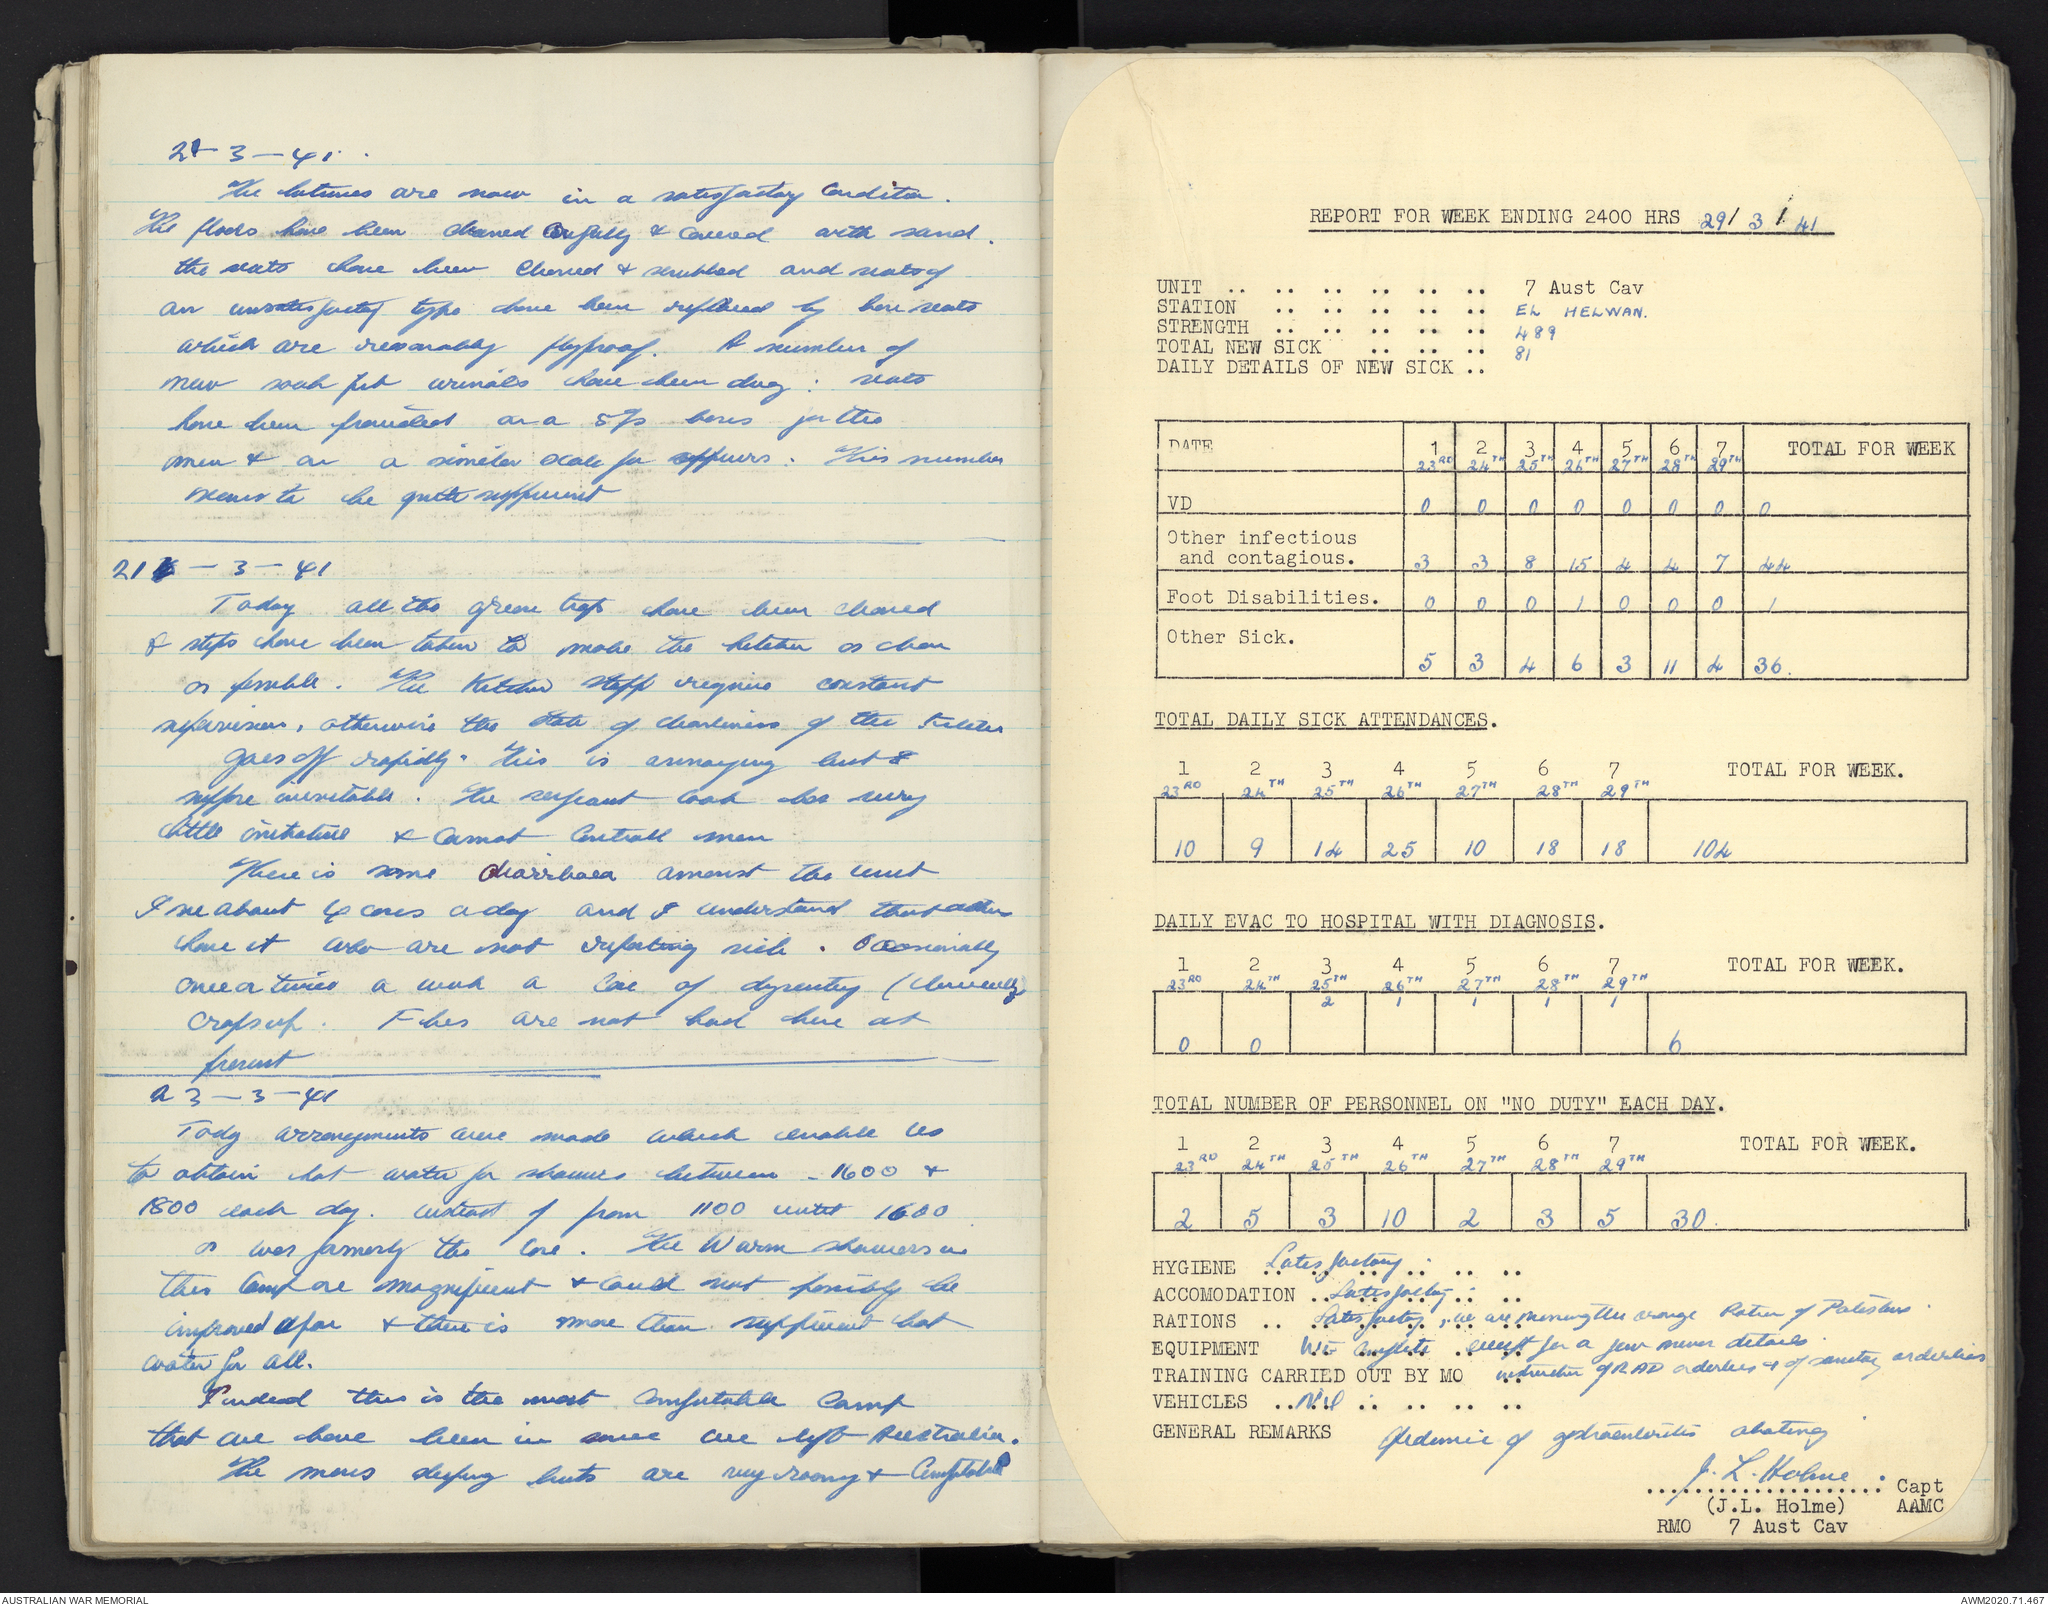 21-3-41.
The latrines are now in a satisfactory condition.
The floors have been cleaned carefully & covered with sand.
the seats have been cleaned & scrubbed and seats of
an unsatisfactory type have been replaced by box seats
which are reasonably flyproof. A number of
new soak pit urinals have been dug: seats
have been provided on a 5% basis for the
men & on a similar scale for officers. This number
seems to be quite sufficient
21-3-41
Today all the grease traps have been cleaned
& steps have been taken to make the kitchen as clean
as possible. The Kitchen staff require constant
supervision, otherwise the state of cleanliness of the kitchen
goes off rapidly. This is annoying but I
suppose inevitable. The sergeant cook has very
little initiative & cannot controll men
There is some diarrhoea amonst the unit
I see about 4 cases a day and I understand that others
have it who are not reporting sick. Occasionally
once or twice a week a case of dysentery (clinically)
crops up. Flies are not bad here at
present
23-3-41
Tody arrangements were made which enable us
to obtain hot water for showers between - 1600 &
1800 each day. instead of from 1100 until 1600
as was formerly the case. The Warm showers in
this Camp are magnificent & could not possibly be
improved upon & there is more than sufficient hot
water for all.
Indeed this is the most comfortable camp
that we have been in since we left Australia.
The mens sleeping huts are very roomy & comfortable
REPORT FOR WEEK ENDING 2400 HRS 29/3/41
UNIT .. .. .. .. .. .. 7 Aust Cav
STATION .. .. .. .. .. EL HELWAN.
STRENGTH .. .. .. .. .. 489
TOTAL NEW SICK .. .. .. 81
DAILY DETAILS OF NEW SICK ..
DATE 1 2 3 4 5 6 7 TOTAL FOR WEEK
23RD 24TH 25TH 26TH 27TH 28TH 29TH
VD 0 0 0 0 0 0 0 0
Other infectious
and contagious. 3 3 8 15 4 4 7 44
Foot Disabilities. 0 0 0 1 0 0 0 1
Other Sick.
5 3 4 6 3 11 4 36.
TOTAL DAILY SICK ATTENDANCES.
1 2 3 4 5 6 7 TOTAL FOR WEEK.
23RD 24TH 25TH 26TH 27TH 28TH 29TH
10 9 14 25 10 18 18 104
DAILY EVAC TO HOSPITAL WITH DIAGNOSIS.
1 2 3 4 5 6 7 TOTAL FOR WEEK.
23RD 24TH 25TH 26TH 27TH 28TH 29TH
2 1 1 1 1
0 0 6
TOTAL NUMBER OF PERSONNEL ON "NO DUTY" EACH DAY.
1 2 3 4 5 6 7 TOTAL FOR WEEK.
23RD 24TH 25TH 26TH 27TH 28TH 29TH
2 5 3 10 2 3 5 30.
HYGIENE .. Satisfactory.
ACCOMODATION .. Satisfactory.
RATIONS .. Satisfactory, we are missing the orange Ration of Palestine.
EQUIPMENT complete except for a few minor details.
TRAINING CARRIED OUT BY MO instruction of RAP orderlies & of sanitary orderlies
VEHICLES .. Nil
GENERAL REMARKS Epidemic of gastroenteritis abating
J. L. Holme. Capt
(J.L. Holme) AAMC
RMO 7 Aust Cav
AUSTRALIAN WAR MEMORIAL
AWM2020.71.467